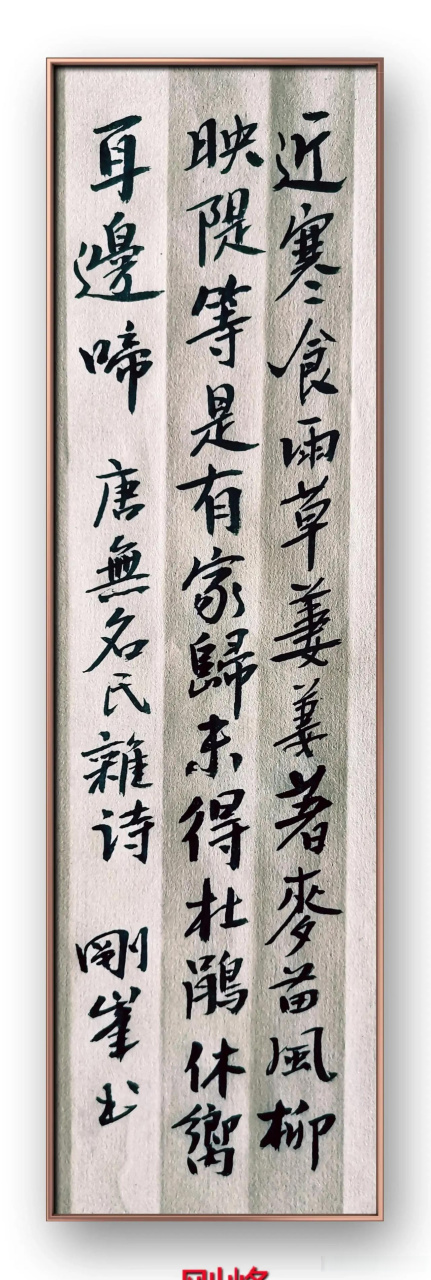 近寒食雨草萋萋著麥苗風柳
映隄等是有家歸未得杜鵑休嚮
耳邊啼 唐無名氏雜诗 剛峯书